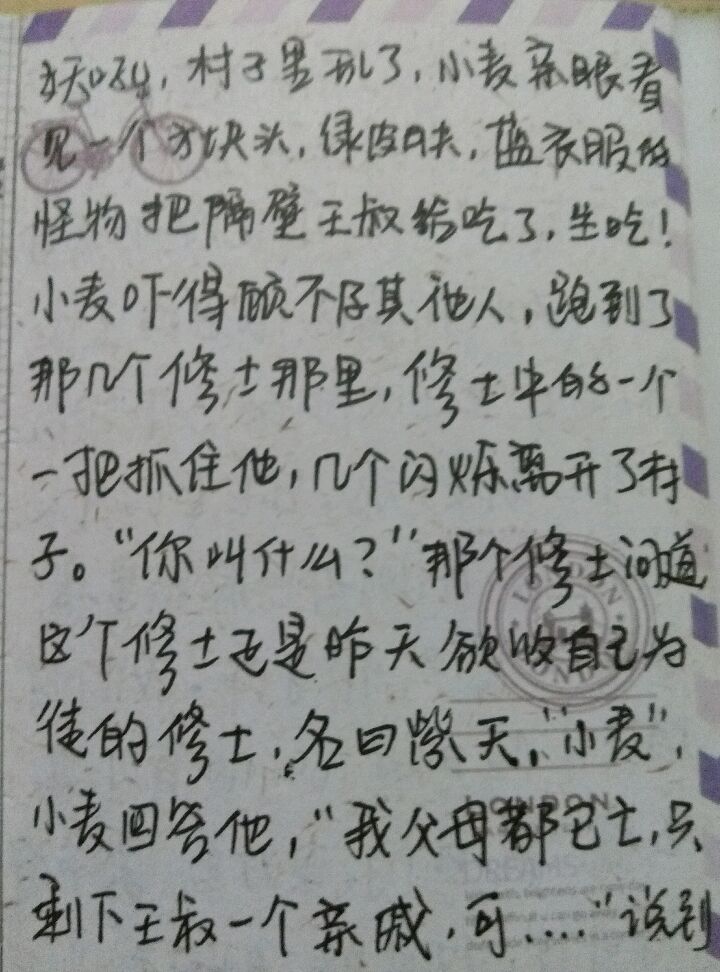 妖呢，村子里乱了，小麦亲眼看
见一个方块头，绿皮肤，蓝衣服的
怪物把隔壁王叔给吃了，生吃！
小麦吓得顾不及其他人，跑到了
那几个修士那里，修士中的一个
一把抓住他，几个闪烁离开了村
子。“你叫什么？”那个修士问道
这个修士正是昨天欲收自己为
徒的修士，名曰 天，“小麦”，
小麦回答他，“我父母都已亡，只
剩下王叔一个亲戚，可……”说到
LONDON
LONDON
LONDON
DREAMS